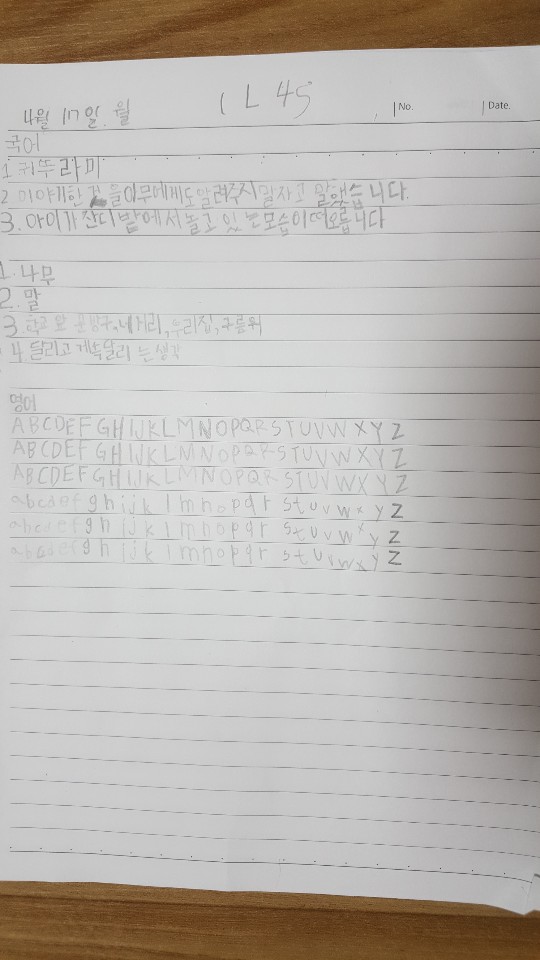 4월 17일. 월
No. Date.
국어
1 귀뚜라미
2 이야기한 것들 아무에게도 알려주지 말자고 말했습니다.
3. 아이가 잔디밭에서 놀고 있는 모습이 떠오릅니다
1. 나무
2. 말
3. 학교 앞 문방구, 네거리, 우리집, 구름위
4 달리고 계속 달리는 생각
영어
ABCDEFGHIJKLMNOPQRSTUVWXYZ
ABCDEFGHIJKLMNOPQRSTUVWXYZ
ABCDEFGHIJKLMNOPQRSTUVWXYZ
abcdefghijklmnopqrstuvwxyz
abcdefghijklmnopqrstuvwxyz
abcdefghijklmnopqrstuvwxyz